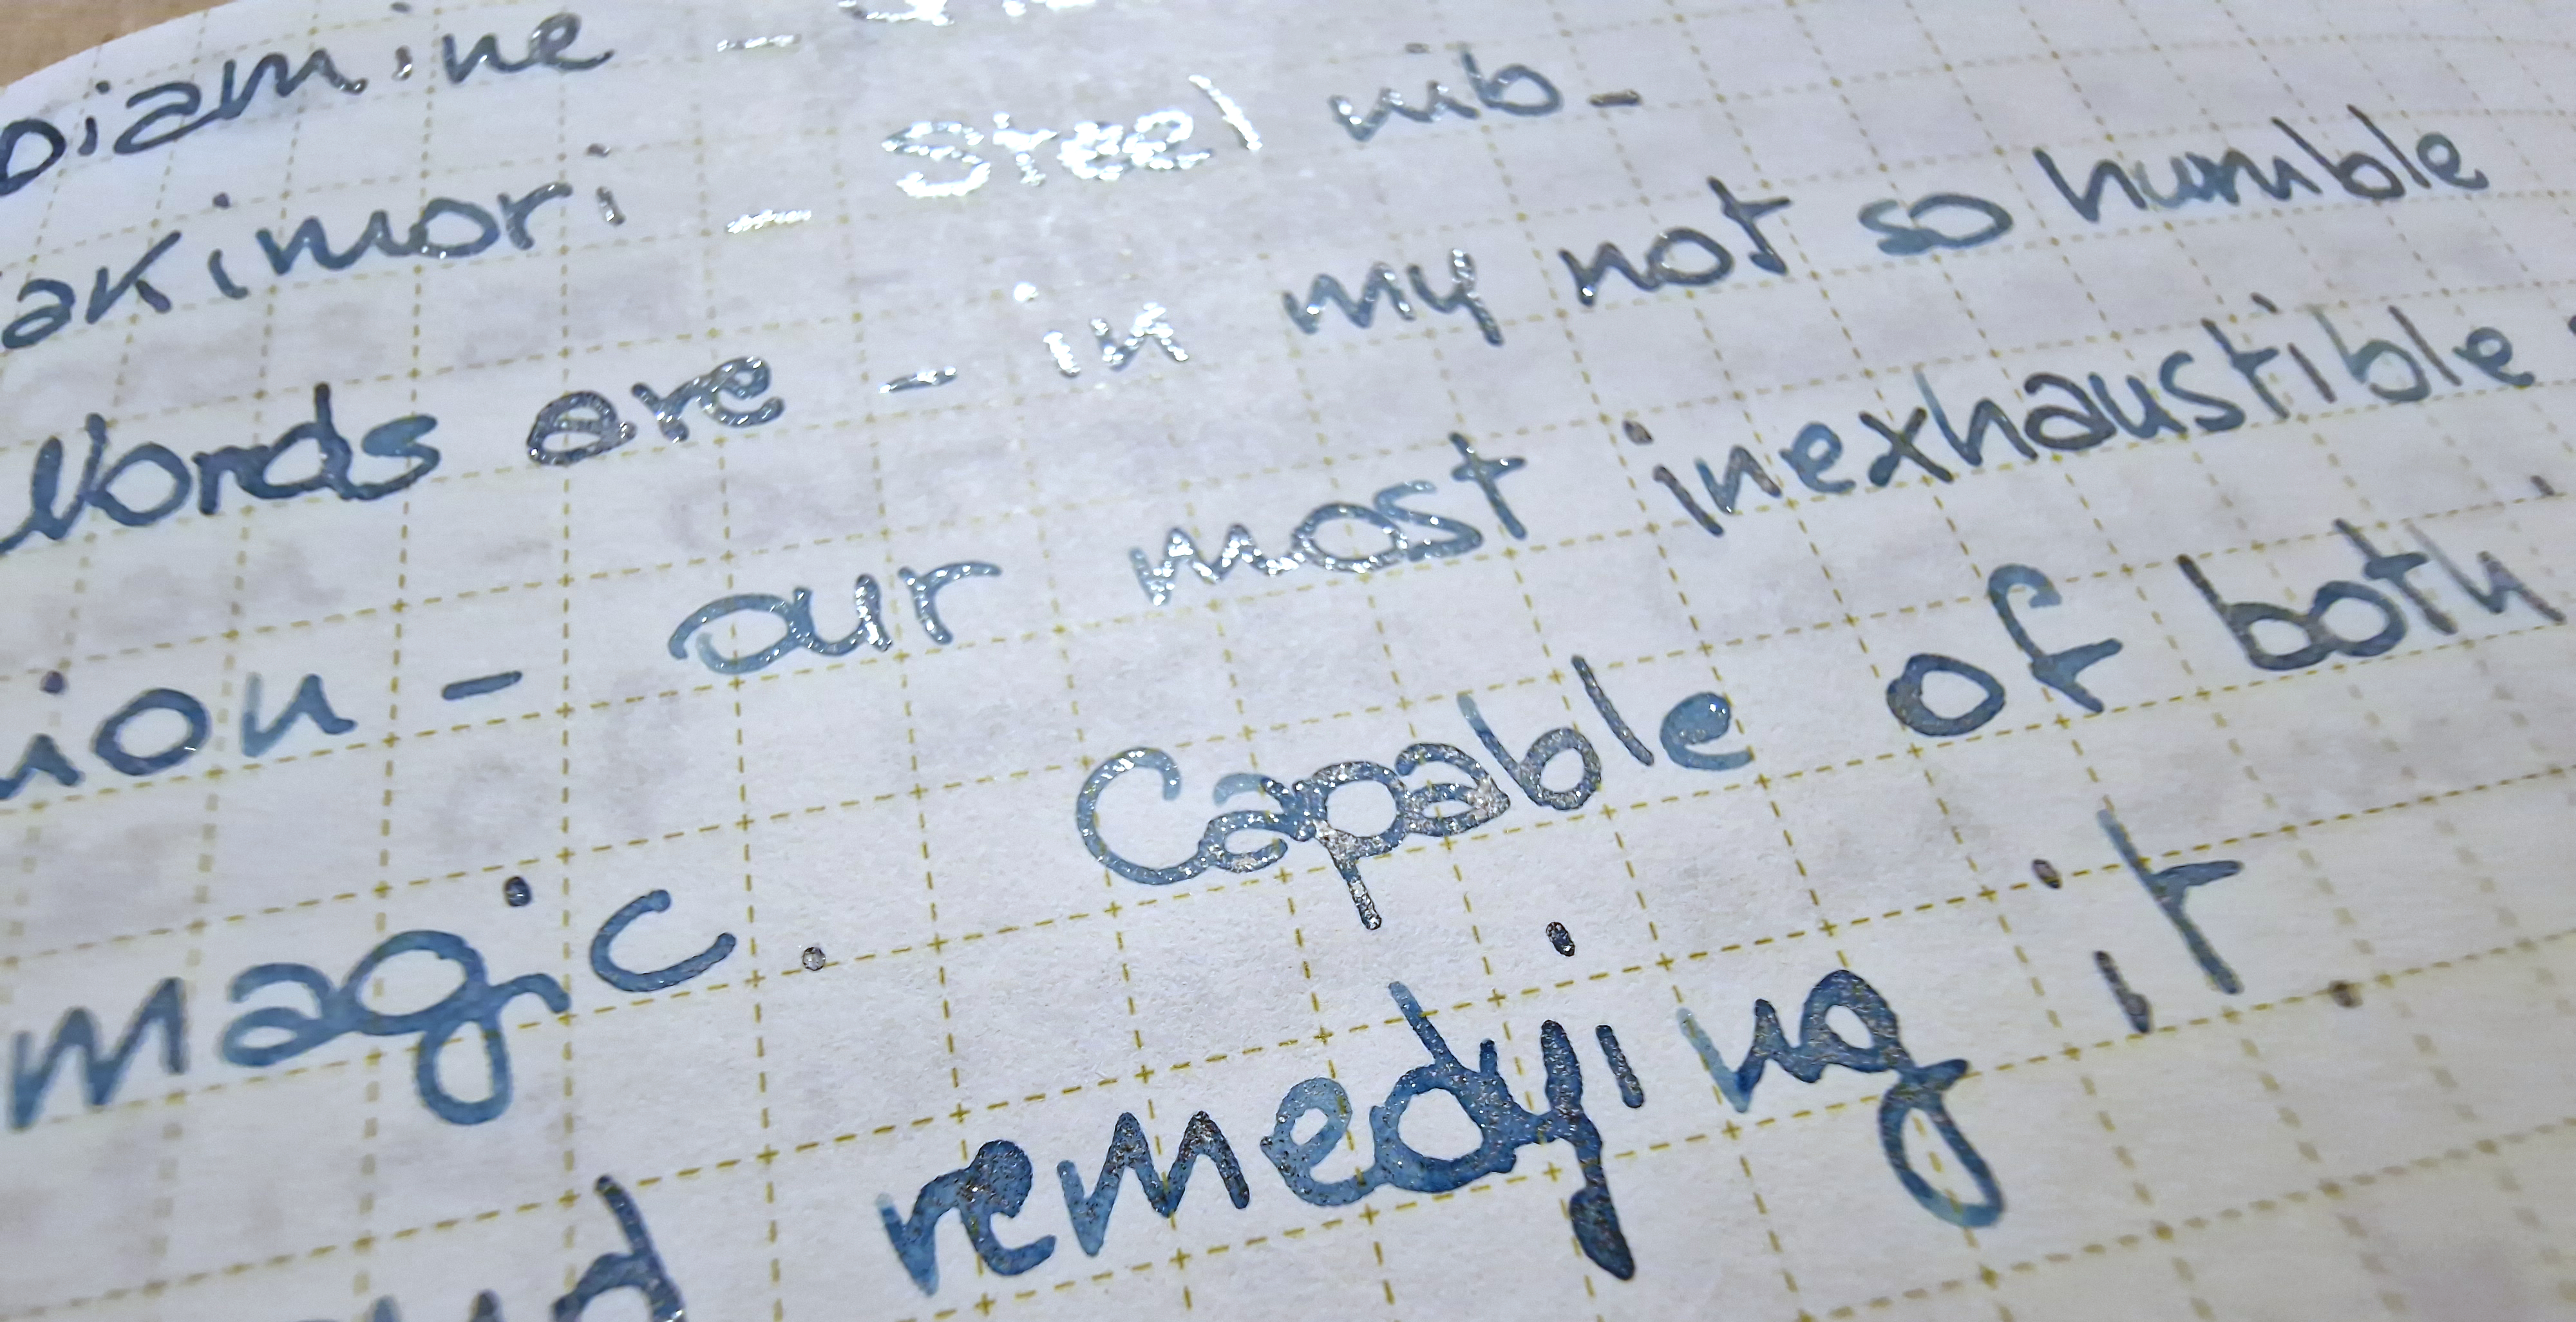 Diamine -
akimori - Steel nib -
Words are - in my not so humble
ion - our most inexhaustible
magic. Capable of both
remedying it.